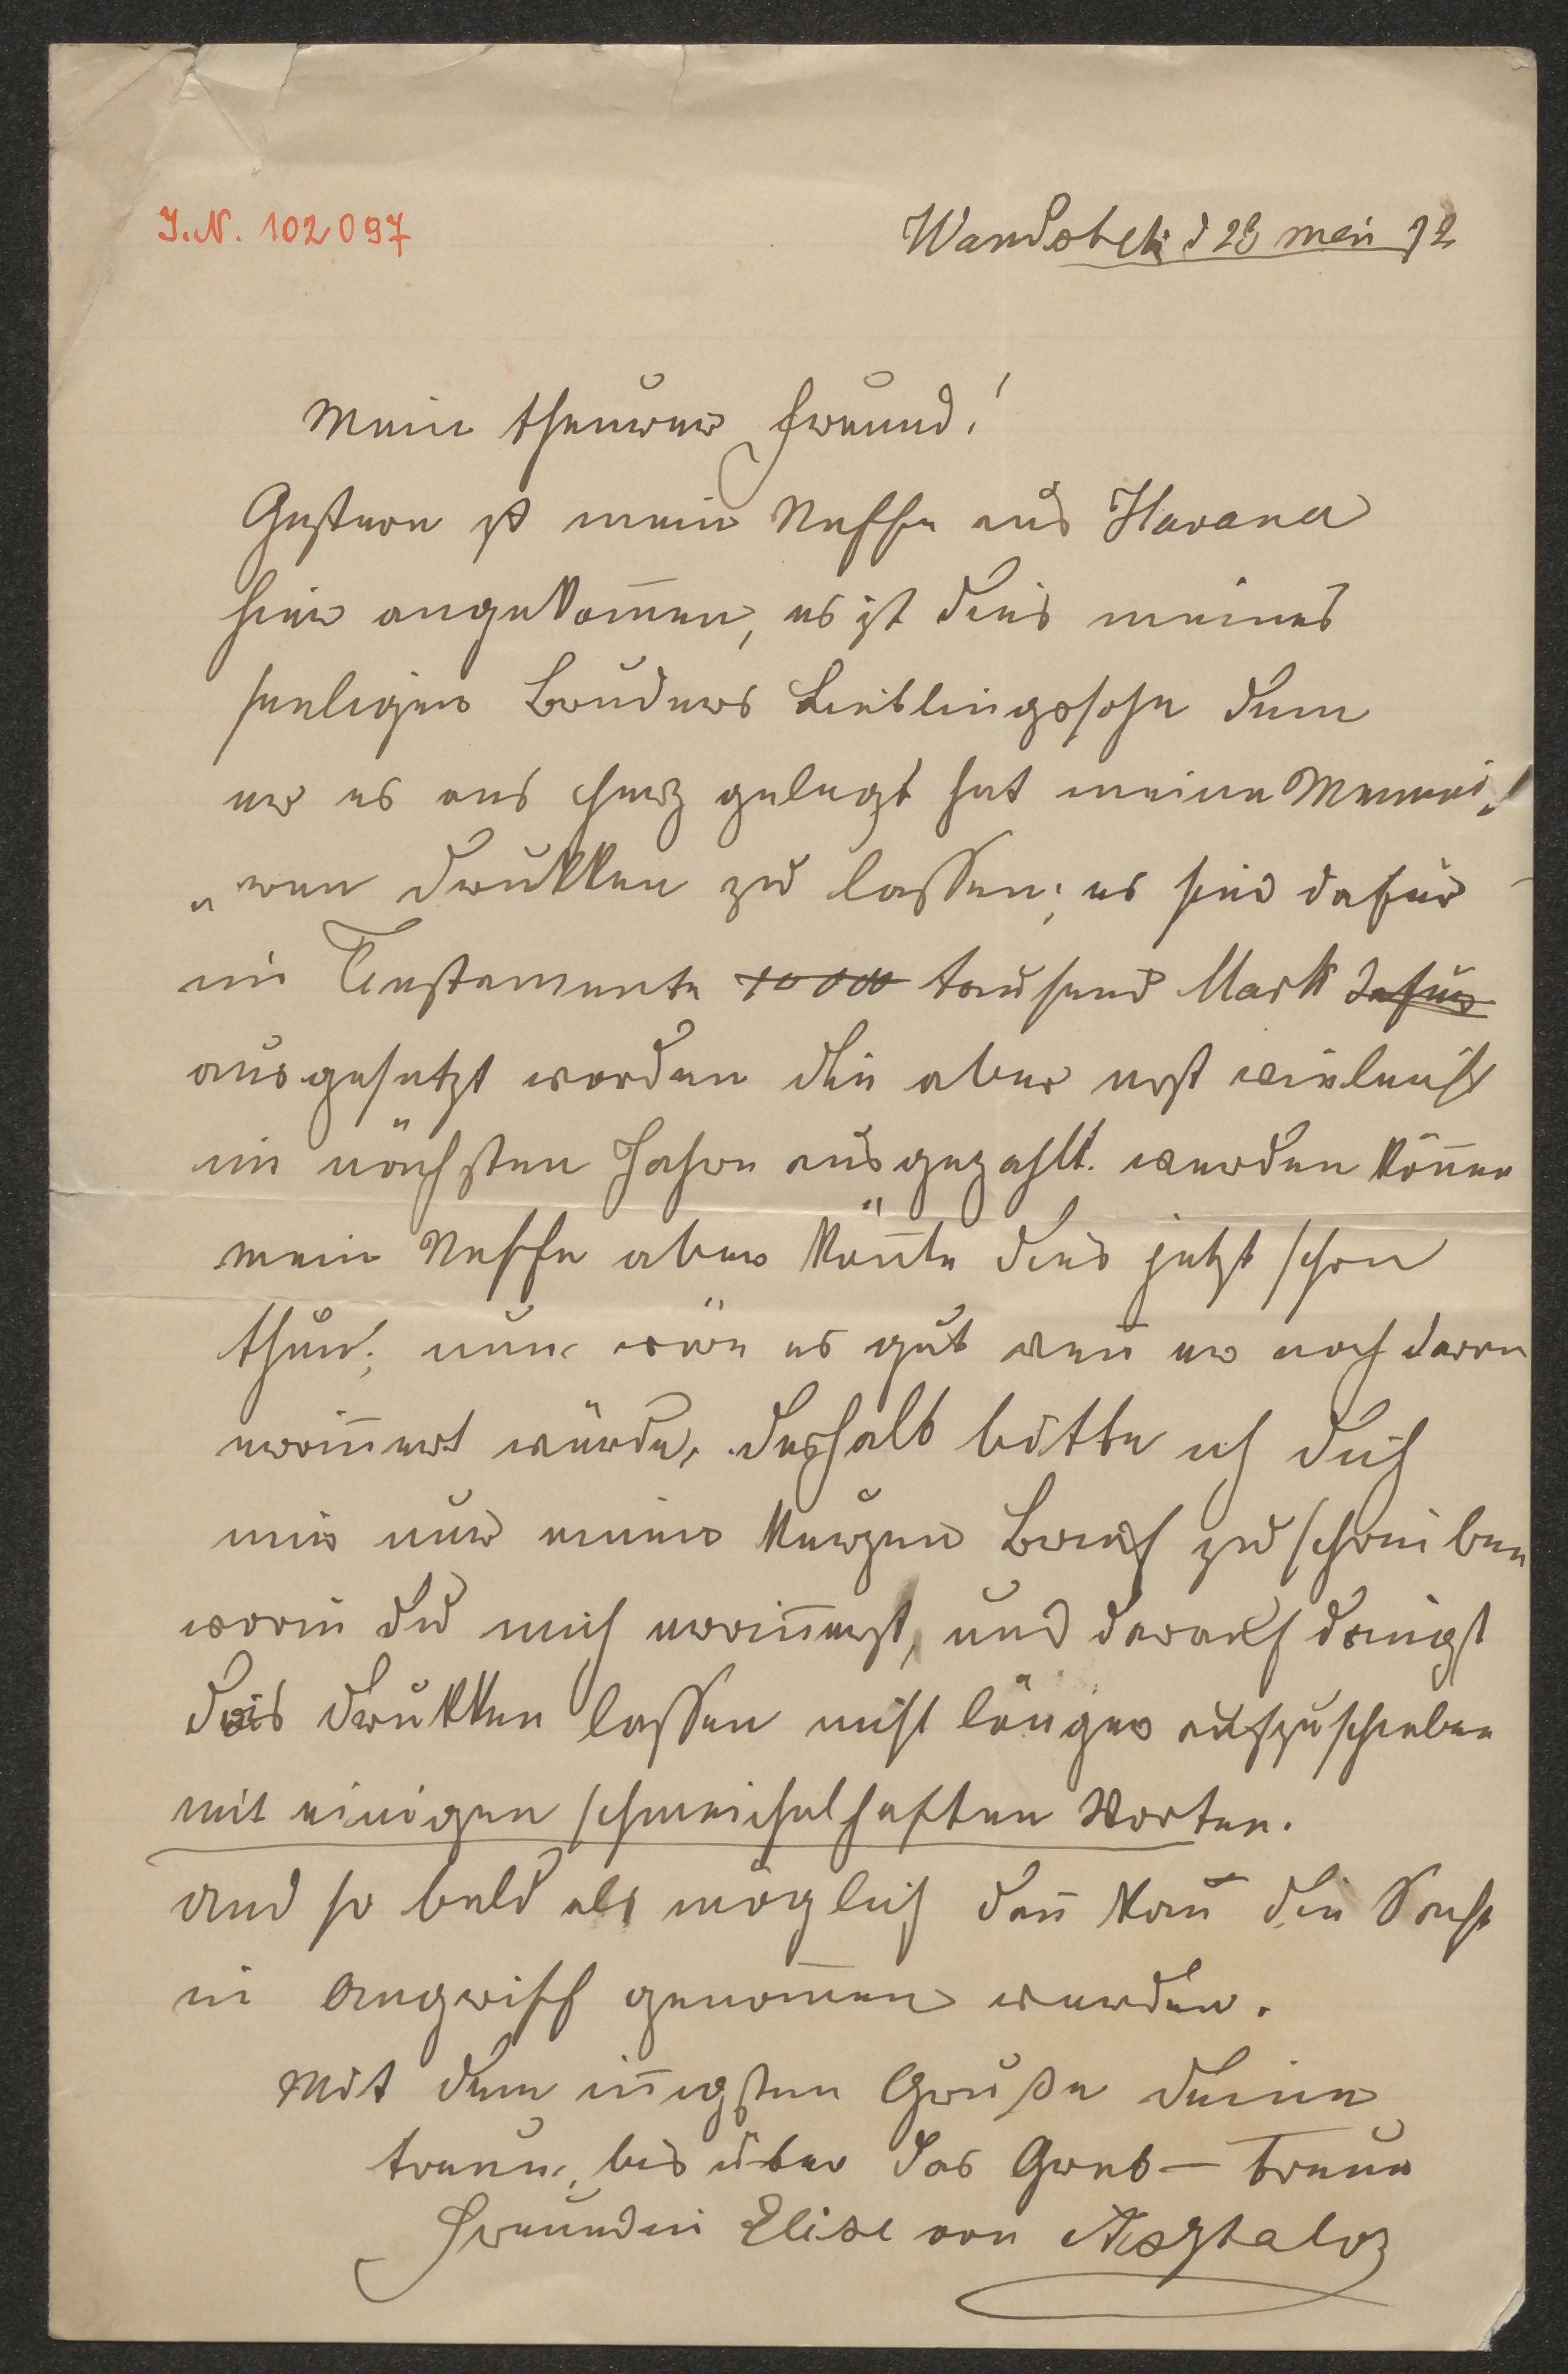 I.N. 102097
Wandsbek d 28 Mai 92
Mein theurer Freund!
Gestern ist mein Neffe aus Havana
hier angekom̄en, es ist dies meines
seeligen Bruders Lieblingssohn dem
er es ans Herz gelegt hat meine Memoi„
„ren drukken zu lassen; es sind dafür
im Testamente 10000 tausend Mark dafür
ausgesetzt worden die aber erst vieleicht
im nächsten Jahre ausgezahlt werden kön̄en
mein Neffe aber kön̄te dies jetzt schon
thun; nun wäre es gut wen̄ er noch daran
errin̄ert würde, deshalb bitte ich dich
mir nur einen kurzen Brief zu schreiben
worin du mich errin̄erst, und darauf dringst
das drukken lassen nicht länger aufzuschieben
mit einigen schmeichelhaften Worten.
und so bald als möglich dan̄ kan̄ die Sache
in Angriff genom̄en werden.
Mit dem in̄igsten Gruße deine
treue, bis über das Grab – treue
Freundin Elise von